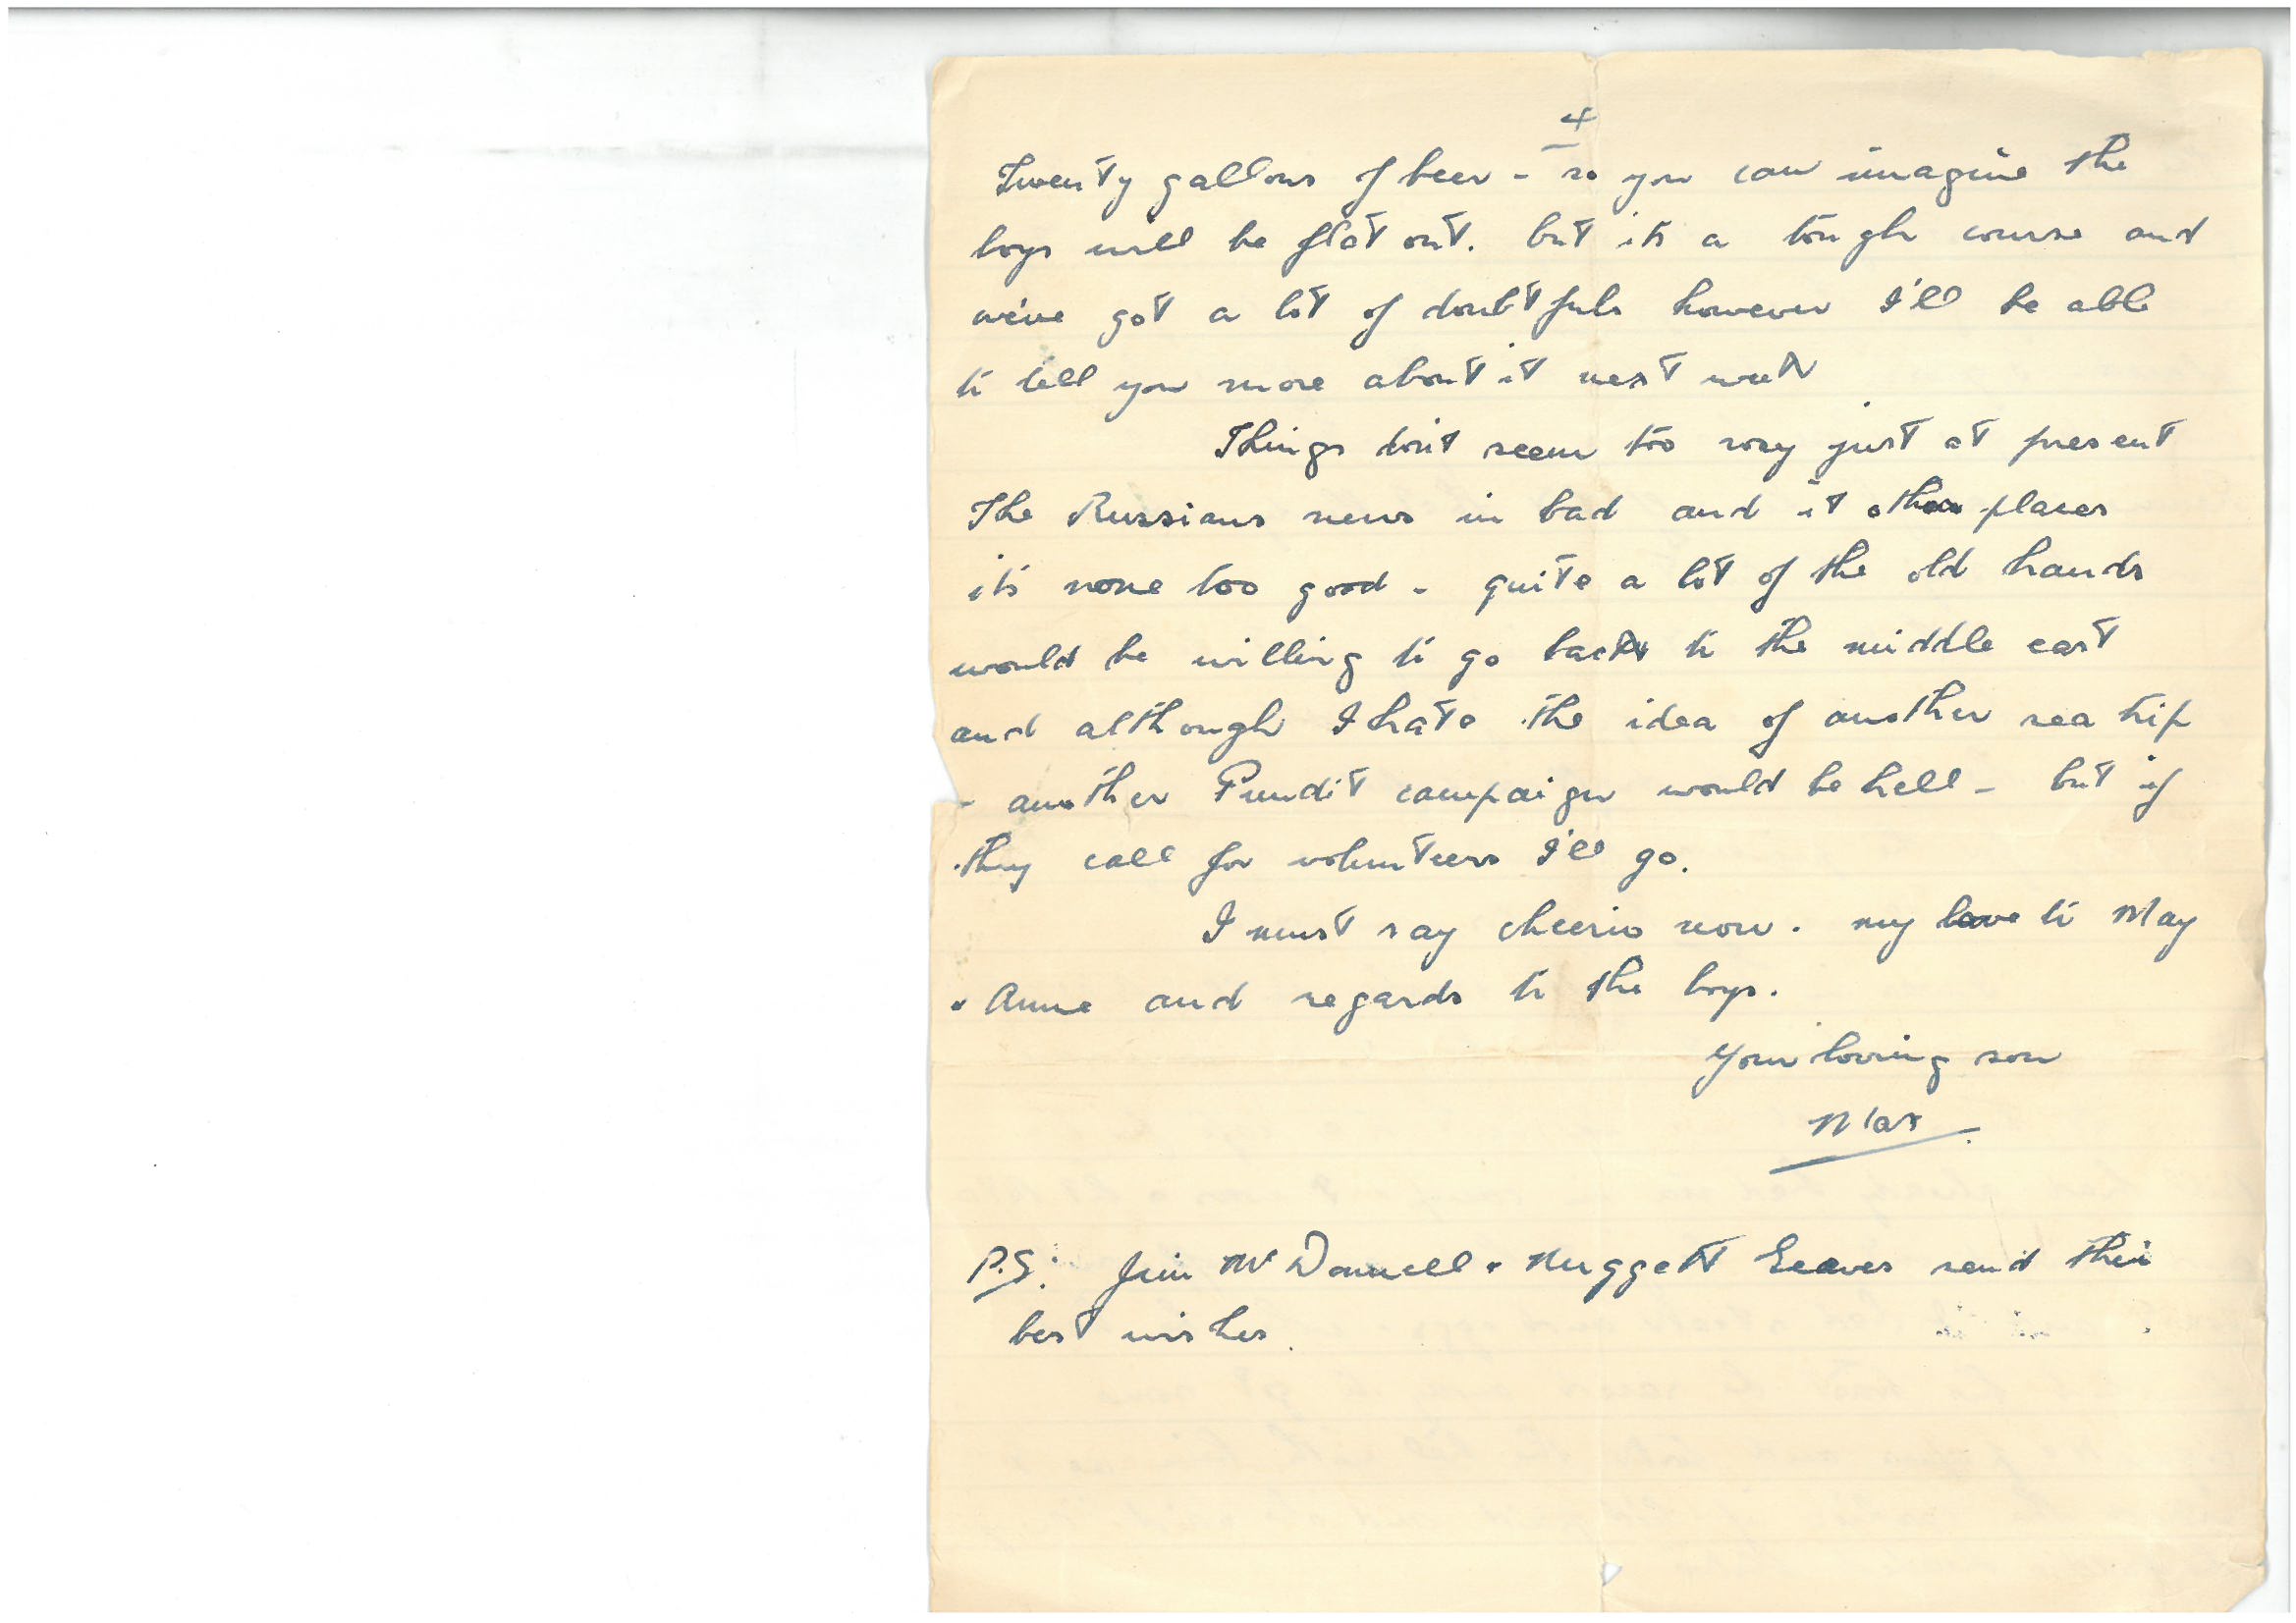 4
Twenty gallons of beer - so you can imagine the
boys will be flat out. but its a tough course and
we've got a lot of doubtfuls however I'll be able
to tell you more about it next week
Things don't seem too rosy just at present
The Russians news in bad and it other places
its none too good - quite a lot of the old hands
would be willing to go back to the middle east
and although I hate the idea of another sea trip
- another Pundit campaign would be hell - but if
they call for volunteers I'll go.
I must say cheerio now. my love to May
& Anne and regards to the boys.
Your loving son
Max.
P.S: Jim McDonnell & Nuggett Eeaves send their
best wishes.